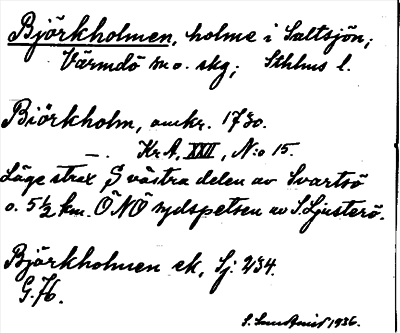 Björkholmen, holme i Saltsjön;
Värmdö m o. skg; Sthlms l.
Biörkholm, omkr. 1730.
—. Kr.A, XXII, N:o 15.
Läge strax S västra delen av Svartsö
o. 5 1/2 km. ÖNÖ sydspetsen av S. Ljusterö.
Björkholmen ek, Sj: 234.
G.76.
S. 1936.